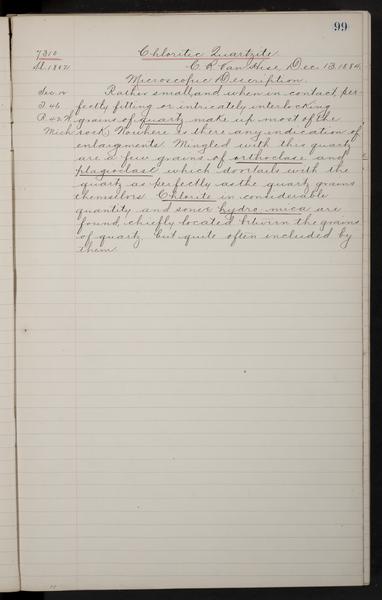 99
7310 Chloritic Quartzite
Sl. 1807 C. R. Van Hise, Dec. 13, 1884.
Microscopic Description.
Sec. 12 Rather small, and when in contact per-
T. 46 fectly fitting or intricately interlocking
R. 42 W. grains of quartz make up most of the
Mich. rock. Nowhere is there any indication of
enlargments. Mingled with this quartz
are a few grains of orthoclase and
plagioclase which dovetails with the
quartz as perfectly as the quartz grains
themselves. Chlorite in considerable
quantity and some hydro-mica are
found, chiefly located between the grains
of quartz, but quite often included by
them.